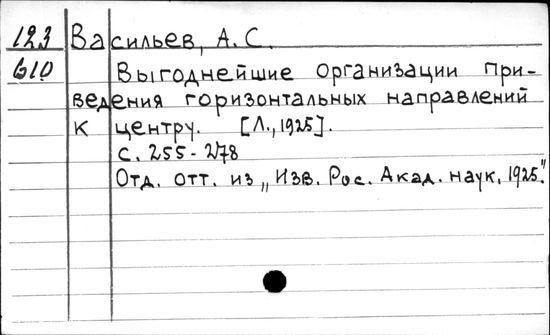 123 Васильев, А. С.
610 Выгоднейшие организации при-
ведения горизонтальных направлений
к центру. [Л., 1925].
с. 255-278
Отд. отт. из „Изв. Рос. Акад. наук, 1925."